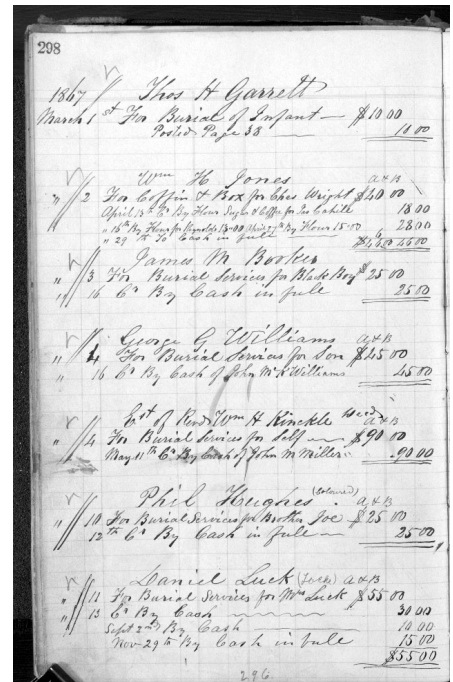 298
1867 Thos H Garrett
March 1st For Burial of Infant — $10 00
Posted Page 38 — 10 00
Wm H. Jones A & B
" 2 For Coffin & Box for Ches Wright $40 00
April 13th Cr By Flour Sugar & Coffee for Jas Cahill 18 00
" 18th By Flour for Reynolds 13.00 April 27th By Flour 15.00 28 00
" 29 To Cash in full 46 00
James M Booker
" 3 For Burial Services for Black Boy $25 00
" 16 Cr By Cash in full 25 00
George G Williams A & B
" 4 For Burial Services for Son $45 00
" 16 Cr By Cash of John McK Williams 45 00
Est of Revd Wm H Kinckle A & B
" 4 For Burial Services for Self — $90 00
May 11th Cr By Cash of John M Miller " 90 00
Phil Hughes (Coloured) A & B
" 10 For Burial Services for Brother Joe — $25 00
12th Cr By Cash in full — 25 00
Daniel Luck A & B
" 11 For Burial Services for Mrs Luck $55 00
" 13 Cr By Cash 30 00
Sept 2nd By Cash 10 00
Nov 29th By Cash in full 15 00
$55 00
296